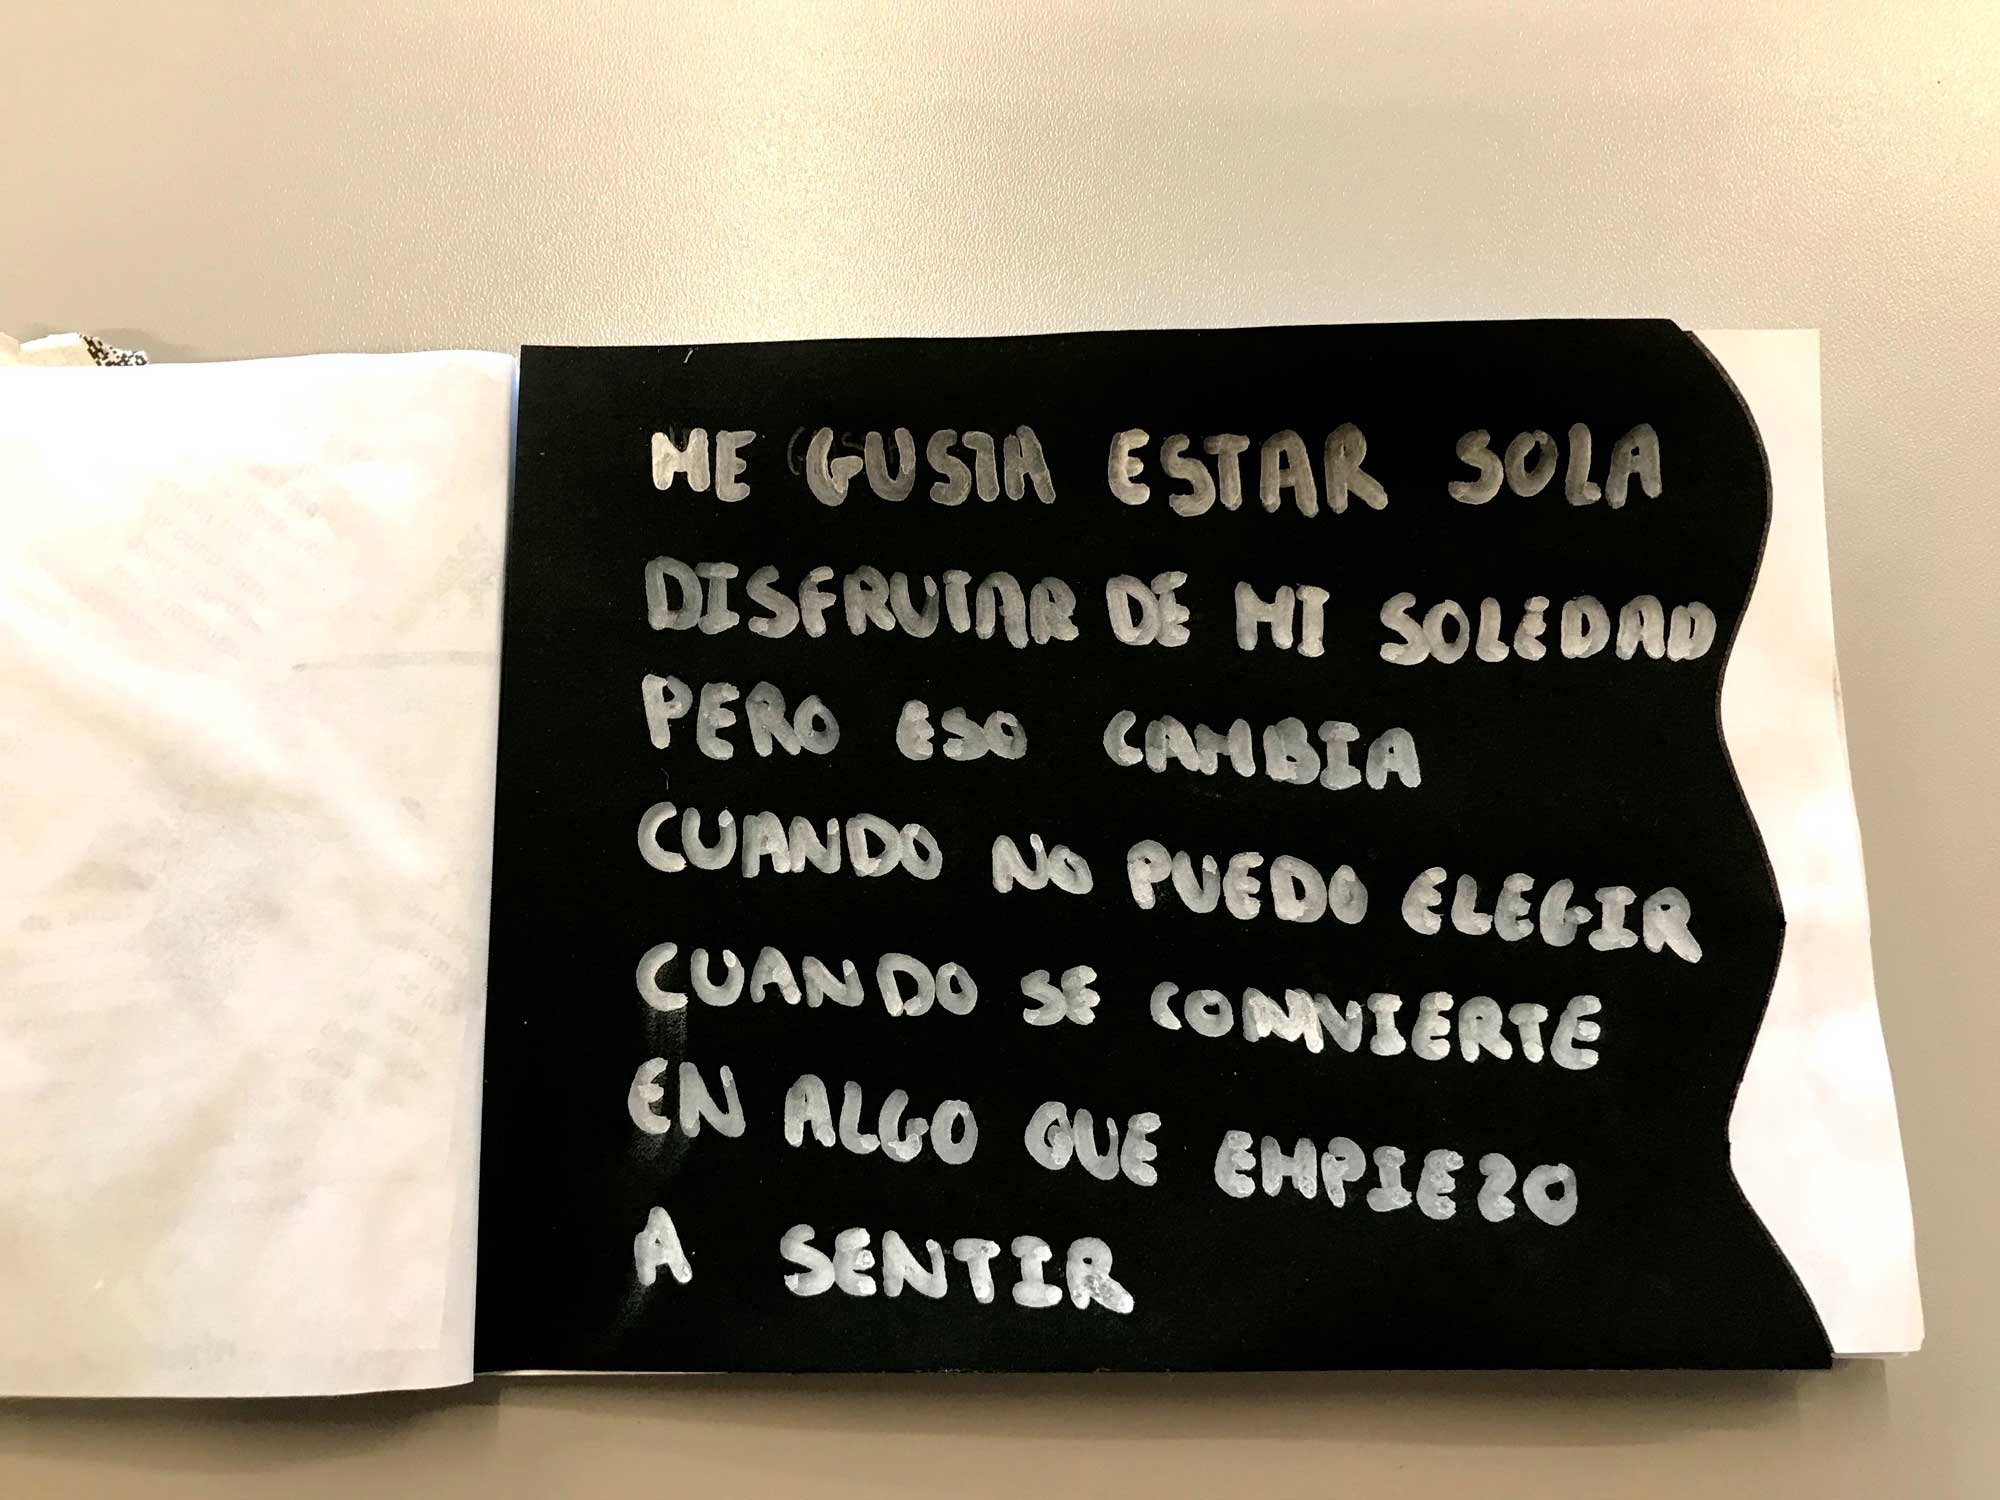 ME GUSTA ESTAR SOLA
DISFRUTAR DE MI SOLEDAD
PERO ESO CAMBIA
CUANDO NO PUEDO ELEGIR
CUANDO SE CONVIERTE
EN ALGO QUE EMPIEZO
A SENTIR